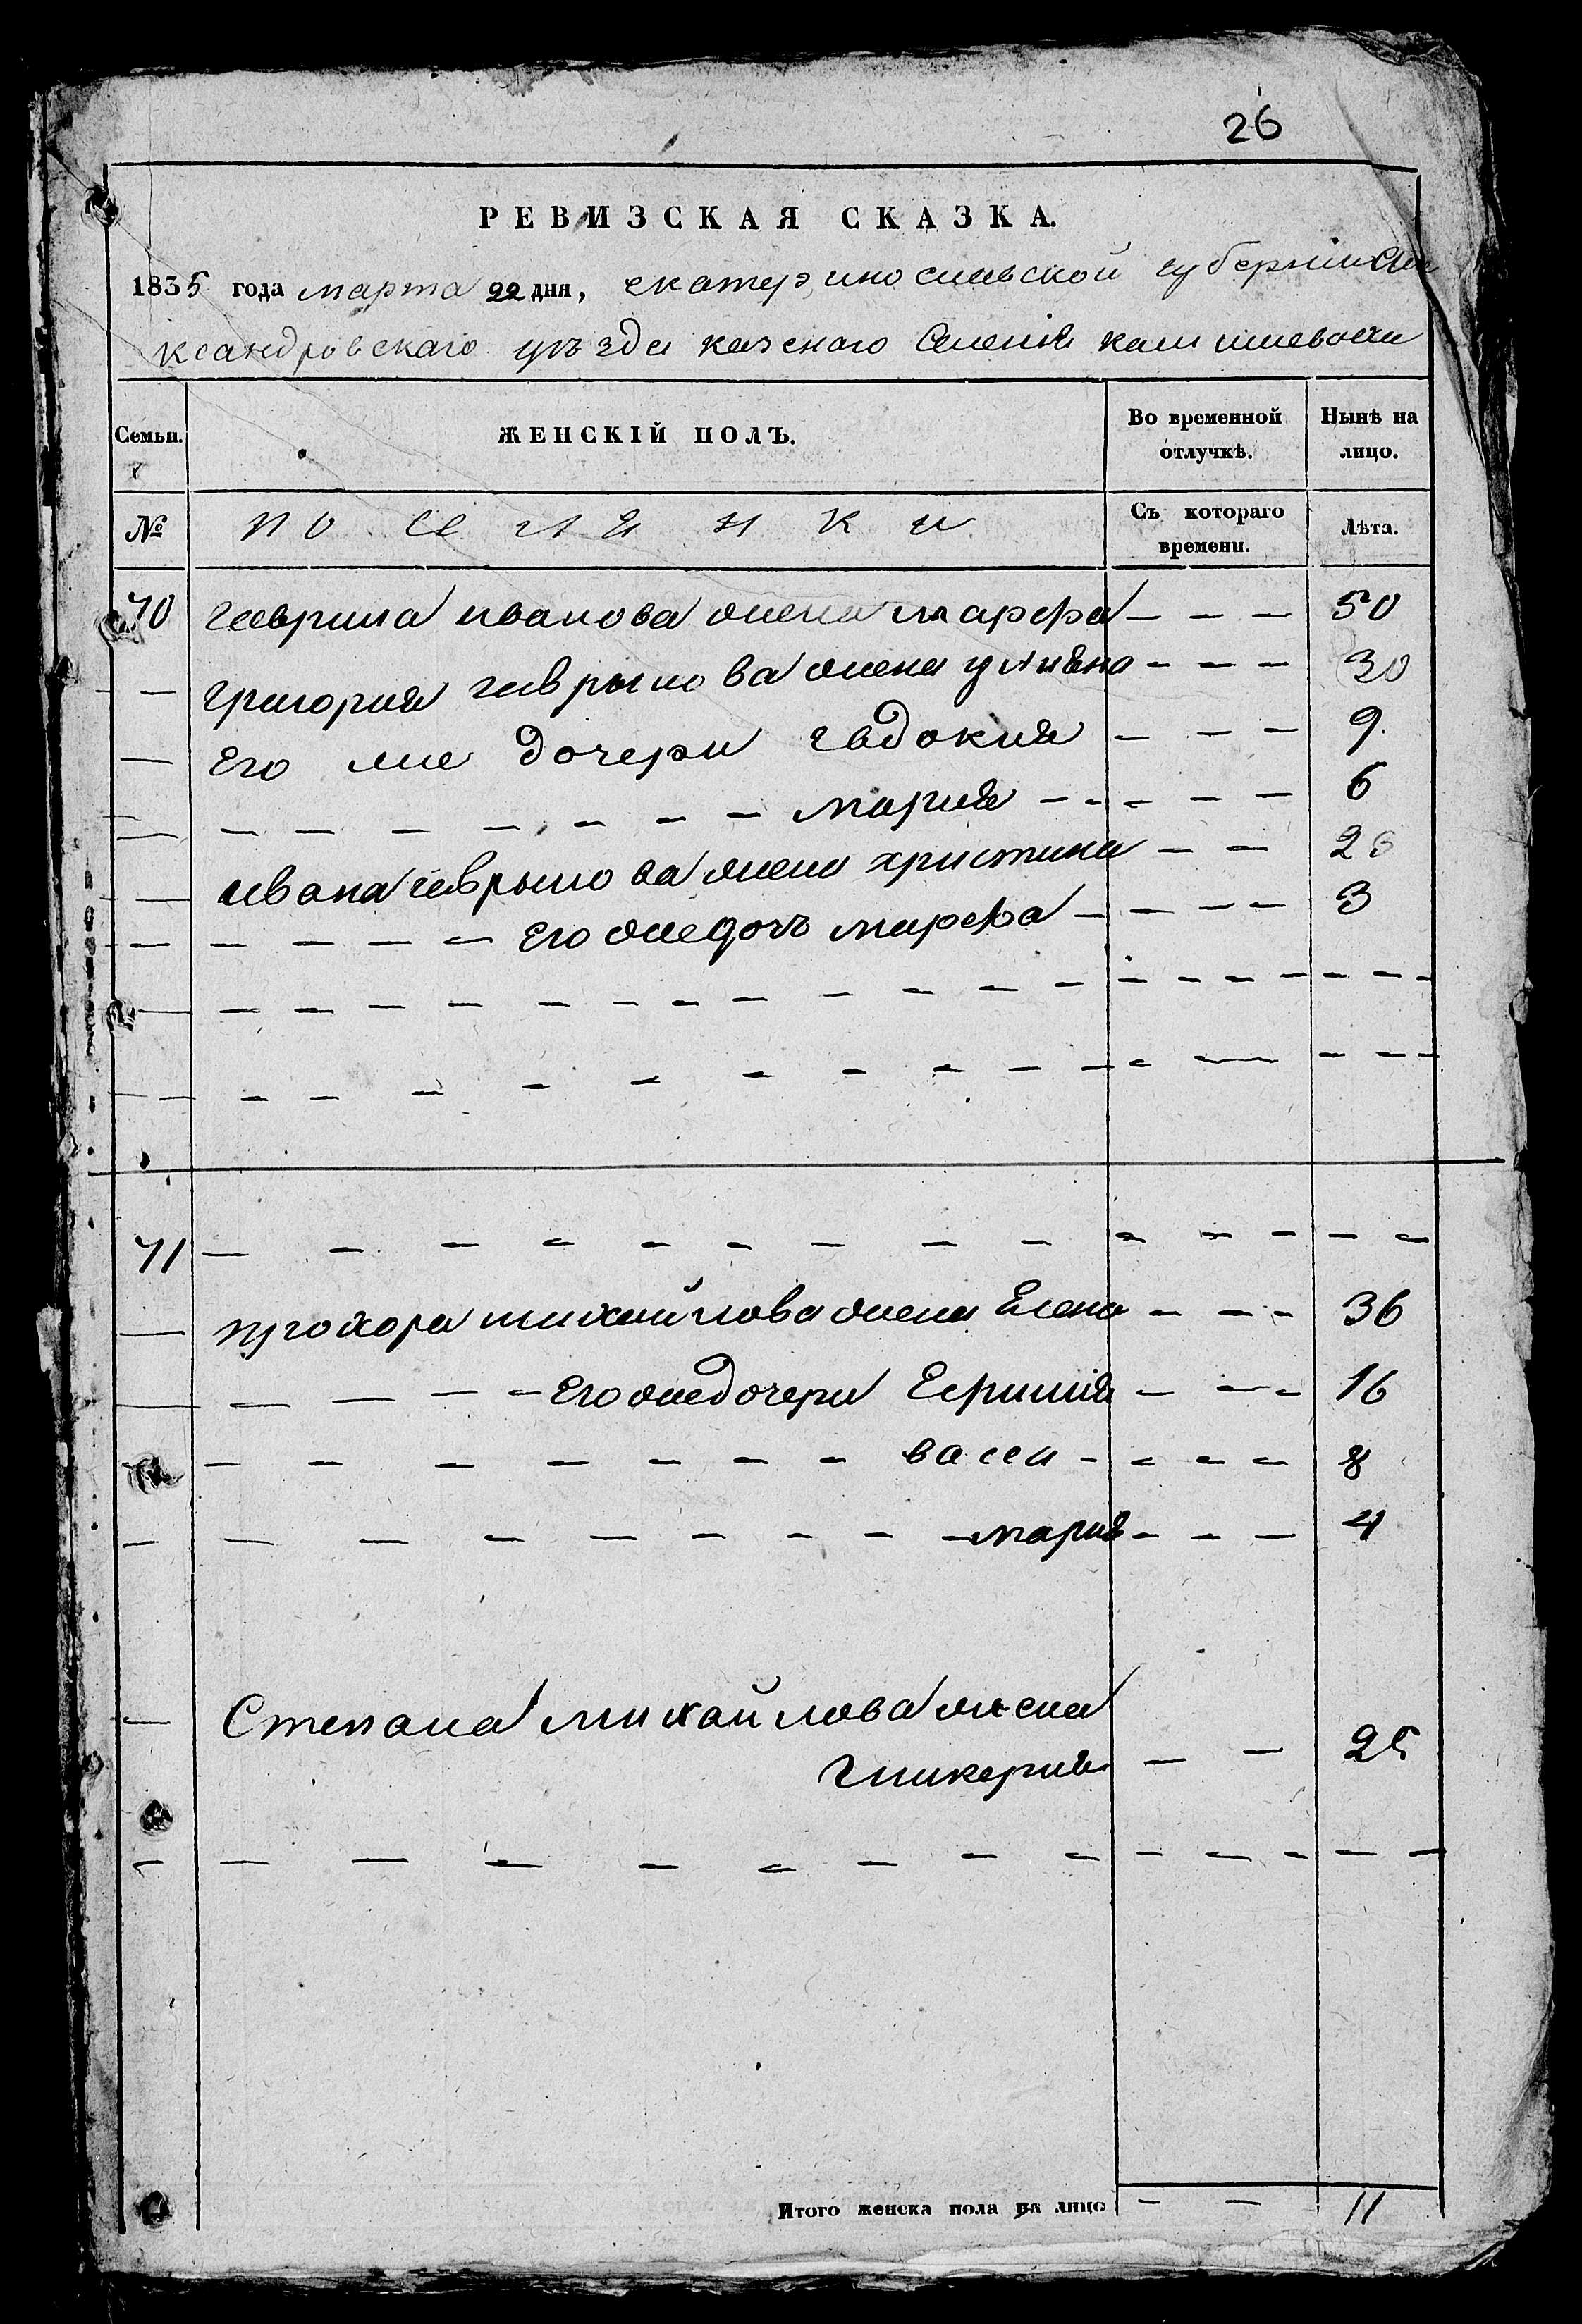 26
РЕВИЗСКАЯ СКАЗКА.
1835 года марта 22 дня, екатеринославской губернии Але
ксандровскаго уъзда казенаго Селения камишевахи
Семьи. ЖЕНСКІЙ ПОЛЪ. Во временной отлучкѣ. Нынѣ на лицо.
№ поселянки Съ котораго времени. Лѣта.
70 гаврила иванова жена марфа — — — 50
григория гаврылова жена улияна — — — 30
Его же дочери Евдокия — — — 9
— — — — — — — мария — — — — — 6
ивана гаврылова жена христина — —
— — — — Его же дочь марфа — — — — 3
71 — — — — — — — — — — — — — —
прохора михайлова жена Елена — — — 36
— — — — Его же дочери Ефимия — — — 16
— — — — — — — — васса — — — — 8
— — — — — — — — мария — — — 4
Степана михайлова жена
гликерия — — 25
Итого женска пола на лицо — — 11